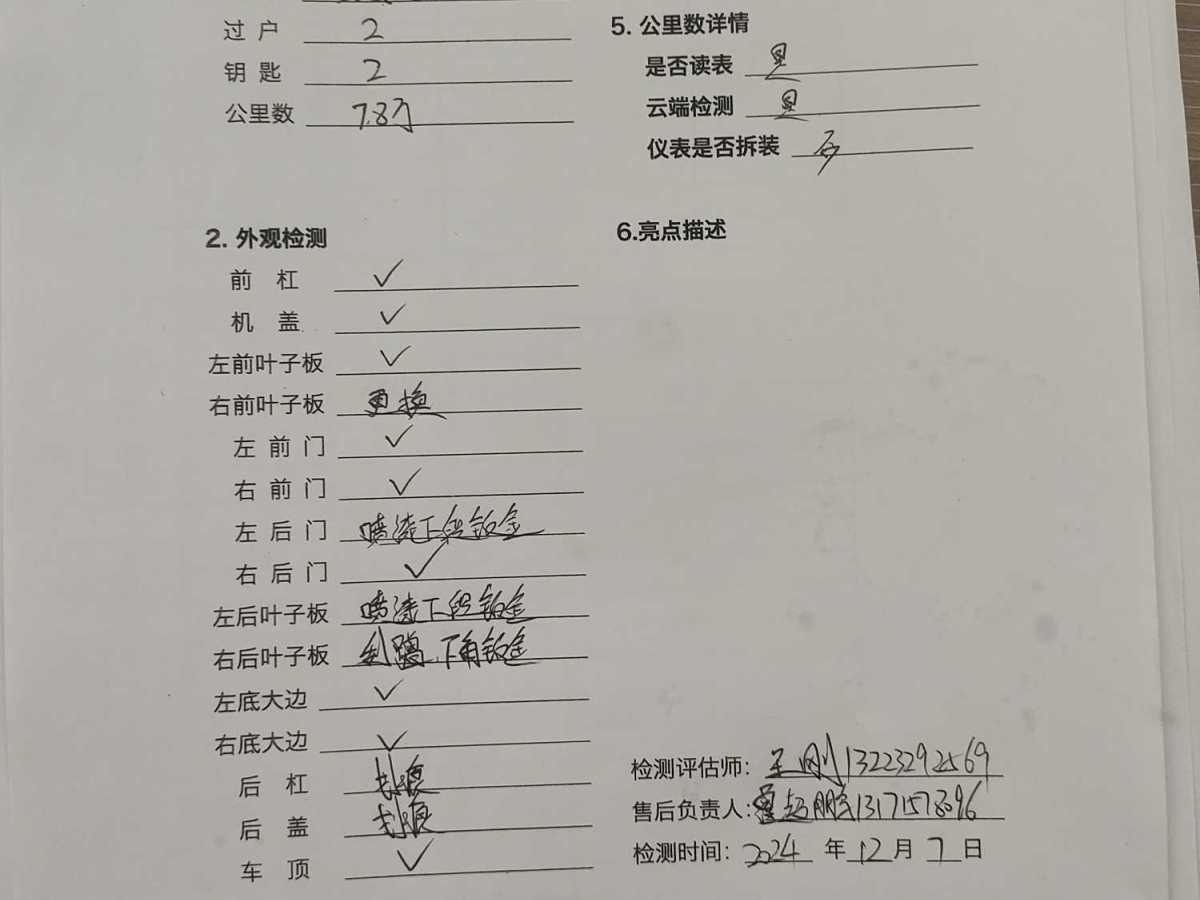 过户 2
钥匙 2
公里数 7.8万
2. 外观检测
前杠 ✓
机盖 ✓
左前叶子板 ✓
右前叶子板 更换
左前门 ✓
右前门 ✓
左后门 喷漆下段钣金
右后门 ✓
左后叶子板 喷漆下段钣金
右后叶子板 下角钣金
左底大边 ✓
右底大边 ✓
后杠 划痕
后盖 划痕
车顶 ✓
5. 公里数详情
是否读表 是
云端检测 是
仪表是否拆装 否
6.亮点描述
检测评估师: 王刚 13223292569
售后负责人: 超鹏 13171578096
检测时间: 2024 年 12 月 7 日